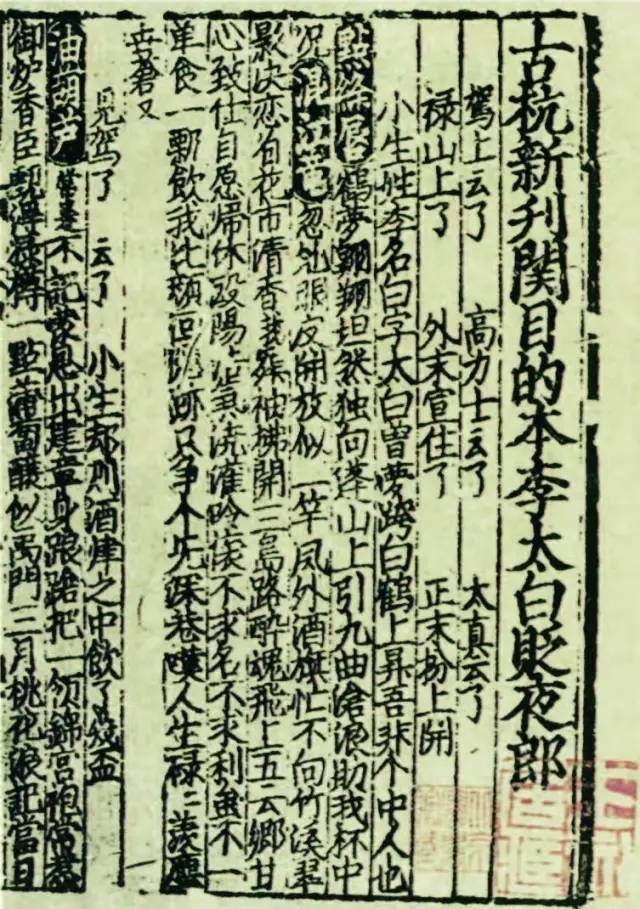 古杭新刊関目的本李太白貶夜郎
駕上云了 高力士云了 太真云了
禄山上了 外末宣住了 正末扮上開
小生姓李名白字太白曾夢跨白鶴上昇吾非个中人也
點絳唇 鶴夢翱翔坦然独向蓬山上引九曲滄浪助我杯中
况 混江龍 忽地眼皮開放似一竿風外酒旗忙不向竹溪翠
影决恋百花市清香我舞袖拂開三島路醉魂飛上五云鄉甘
心致仕自愿歸休 不求名不求利虽不一
单食一瓢飲我比顔回隐跡只争个无陋巷嘆人生碌二羡塵
世蒼又
見駕了 云了 小生却則酒肆之中飲了幾盃
油葫芦 不記 出建章身踉蹌把一領錦宫袍常惹
御炉香臣 一點葡萄釀似禹門三月桃花浪記當日